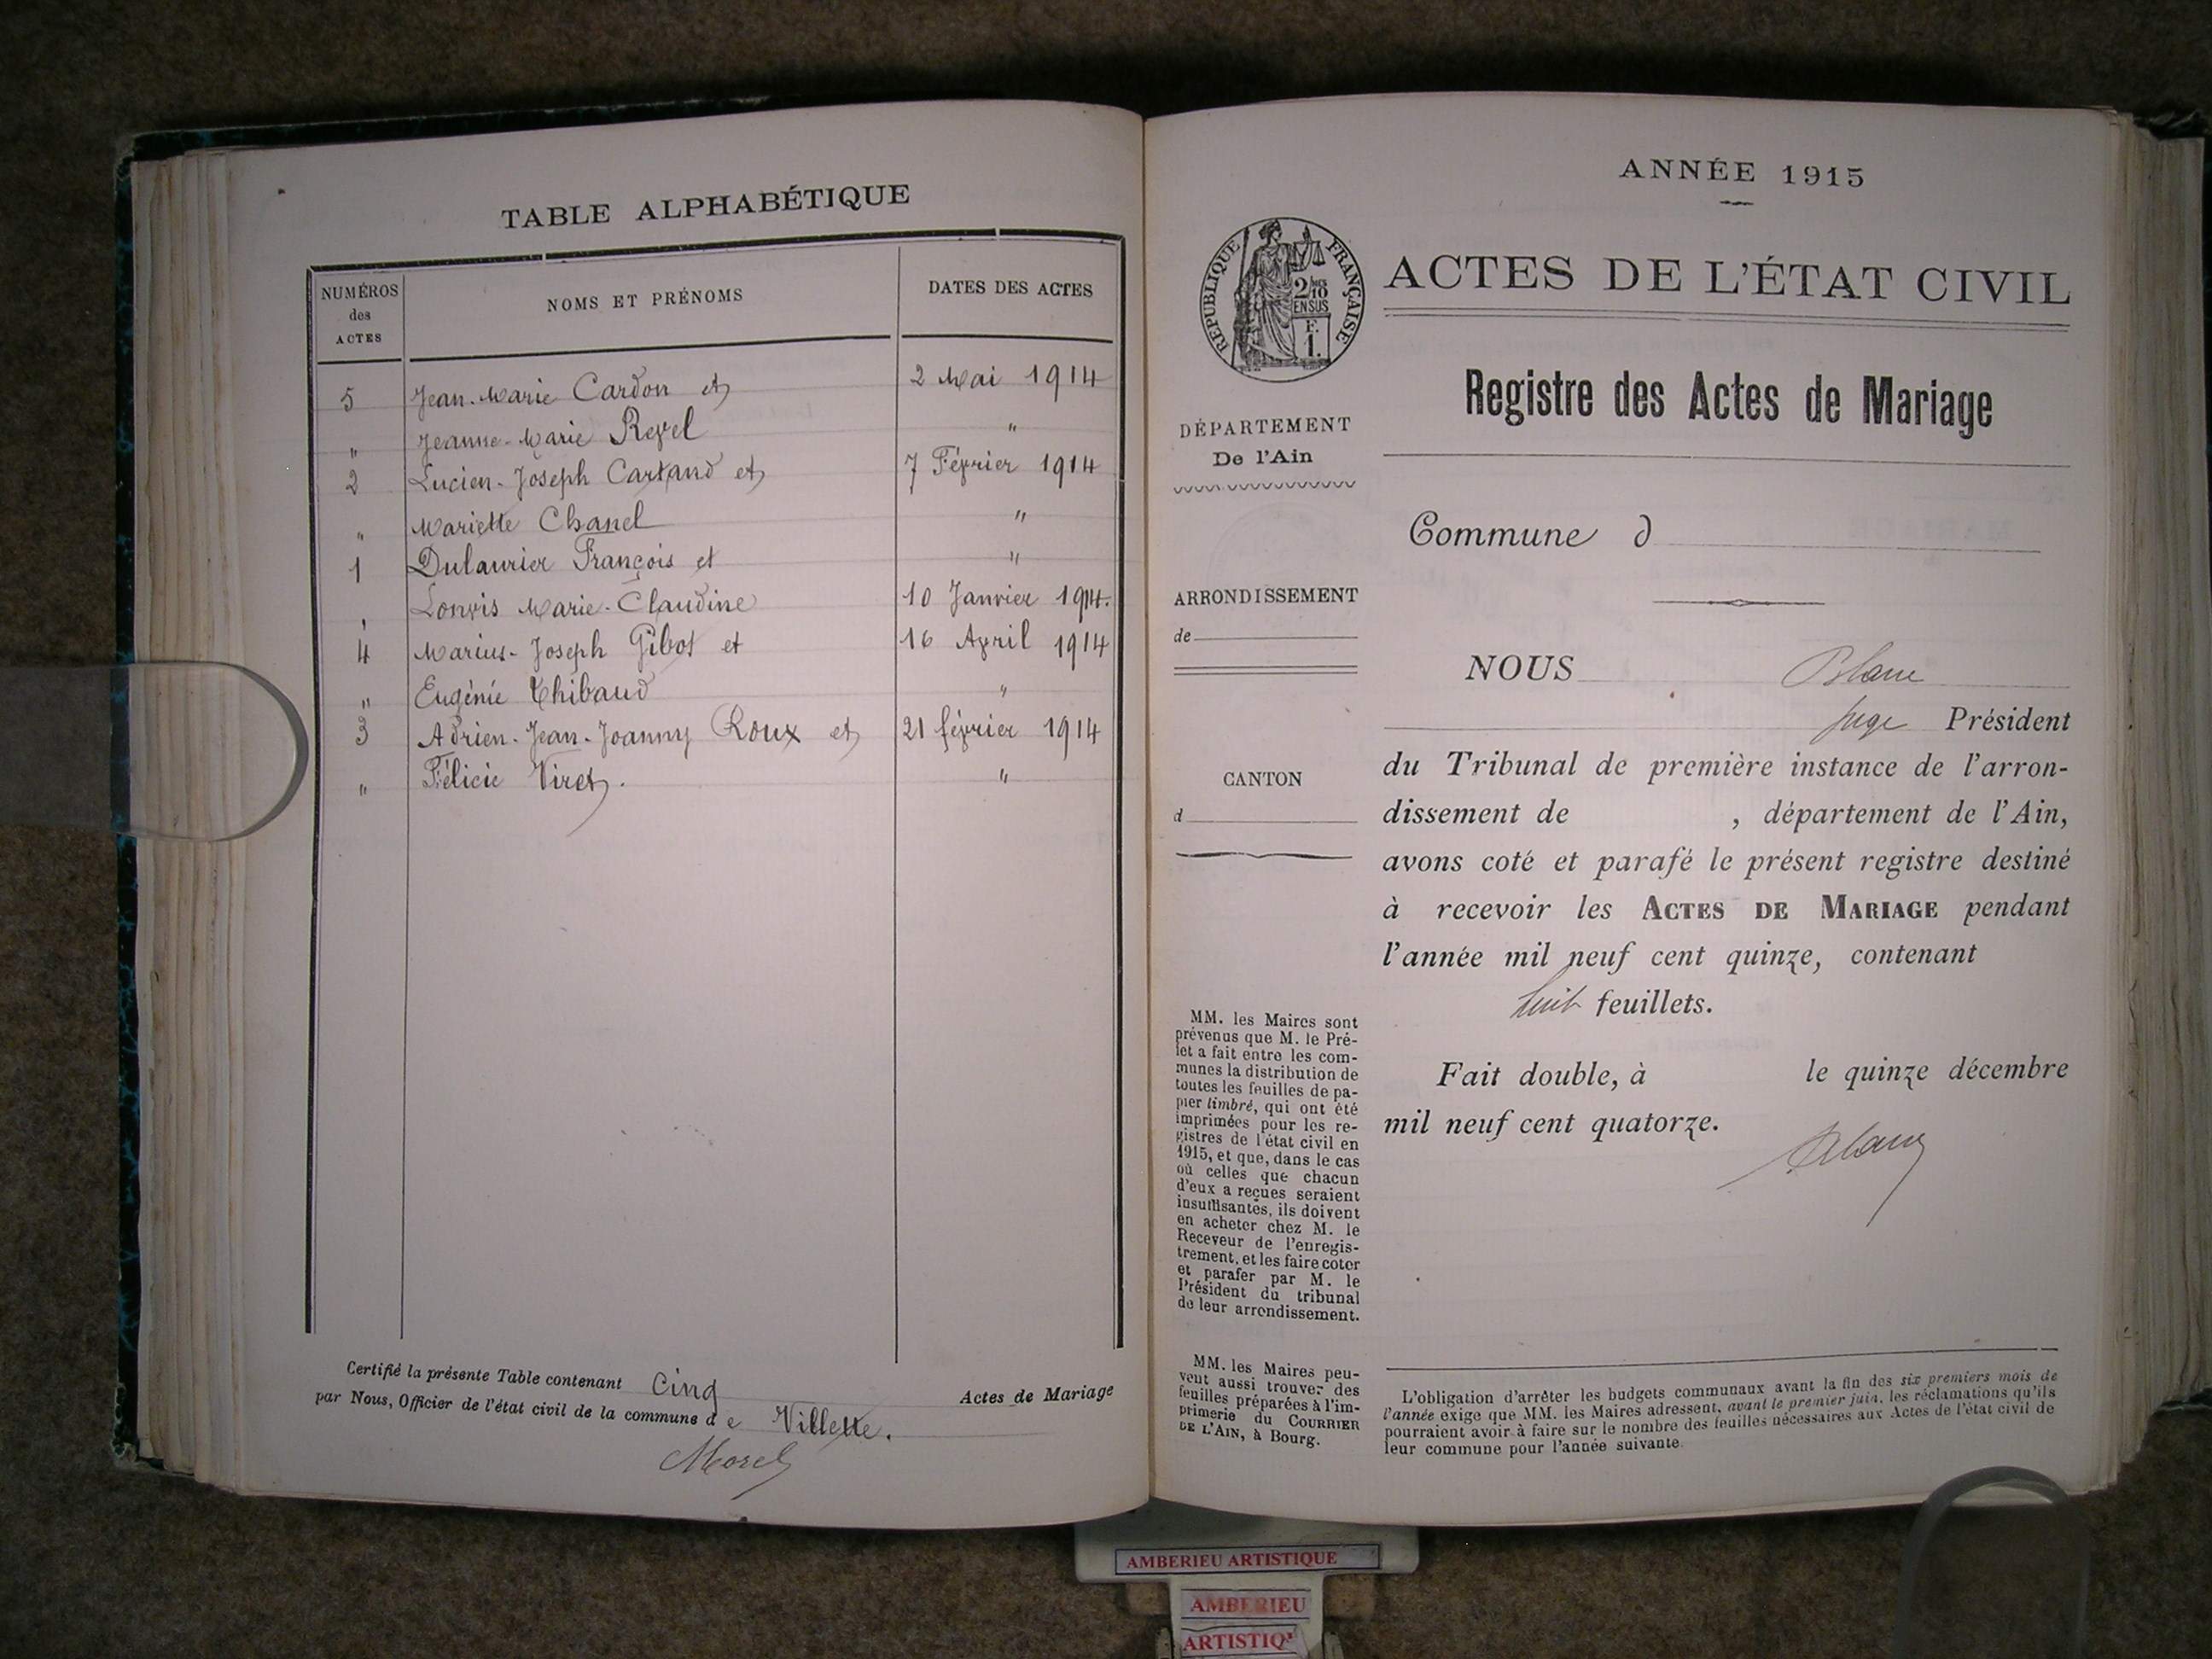 TABLE ALPHABÉTIQUE
NUMÉROS des ACTES
NOMS ET PRÉNOMS
DATES DES ACTES
5 Jean-Marie Cardon et 2 Mai 1914
" Jeanne-Marie Revel "
2 Lucien-Joseph Cartand et 7 Février 1914
" Mariette Chanel "
1 Dulaurier François et "
" Marie-Claudine 10 Janvier 1914.
4 Marius-Joseph Gibot et 16 Avril 1914
" Eugénie Thibaud "
3 Adrien-Jean-Joanny Roux et 21 février 1914
" Félicie Viret. "
Certifié la présente Table contenant Cinq Actes de Mariage
par Nous, Officier de l'état civil de la commune de Villette.
Morel
ANNÉE 1915
RÉPUBLIQUE FRANÇAISE
2/10
EN SUS
F.
1.
ACTES DE L'ÉTAT CIVIL
Registre des Actes de Mariage
DÉPARTEMENT
De l'Ain
ARRONDISSEMENT
de
CANTON
d
MM. les Maires sont
prévenus que M. le Pré-
fet a fait entre les com-
munes la distribution de
toutes les feuilles de pa-
pier timbré, qui ont été
imprimées pour les re-
gistres de l'état civil en
1915, et que, dans le cas
où celles que chacun
d'eux a reçues seraient
insuffisantes, ils doivent
en acheter chez M. le
Receveur de l'enregis-
trement, et les faire coter
et parafer par M. le
Président du tribunal
de leur arrondissement.
MM. les Maires peu-
vent aussi trouver des
feuilles préparées à l'im-
primerie du COURRIER
DE L'AIN, à Bourg.
Commune d
NOUS Blanc
juge Président
du Tribunal de première instance de l'arron-
dissement de , département de l'Ain,
avons coté et parafé le présent registre destiné
à recevoir les ACTES DE MARIAGE pendant
l'année mil neuf cent quinze, contenant
huit feuillets.
Fait double, à le quinze décembre
mil neuf cent quatorze.
Blanc
L'obligation d'arrêter les budgets communaux avant la fin des six premiers mois de
l'année exige que MM. les Maires adressent, avant le premier juin, les réclamations qu'ils
pourraient avoir à faire sur le nombre des feuilles nécessaires aux Actes de l'état civil de
leur commune pour l'année suivante.
AMBERIEU ARTISTIQUE
AMBERIEU
ARTISTIQ